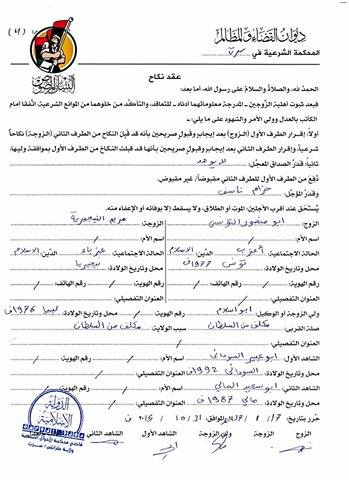 ديوان القضاء والمظالم
المحكمة الشرعية في سرت
البنيان المرصوص
عقد نكاح
الحمد لله، والصلاة والسلام على رسول الله، أما بعد:
فبعد ثبوت أهلية الزوجين - المدرجة معلوماتهما أدناه - للتعاقد، والتأكد من خلوهما من الموانع الشرعية، اتفقا أمام
الكاتب بالعدل وولي الأمر والشهود على ما يلي:
أولاً: إقرار الطرف الأول (الزوج) بعد إيجاب وقبول صريحين بأنه قد قبل النكاح من الطرف الثاني (الزوجة) نكاحاً
شرعية وإقرار الطرف الثاني بعد إيجاب وقبول صريحين بأنها قد قبلت النكاح من الطرف الأول بموافقة وليها.
ثانياً: قدر الصداق المعجل: لا يوجد
دفع من الطرف الأول للطرف الثاني مقبوضاً/ غير مقبوض.
وقدر المؤجل: حزام ناسف
يستحق عند أقرب الأجلين، الموت أو الطلاق، ولا يسقط إلا بوفائه أو الإعفاء منه.
الزوج: ابو منصور التونسي الزوجة: مريم النيجيرية
اسم الأم: اسم الأم:
الحالة الاجتماعية: أعزب الدين: الاسلام الحالة الاجتماعية: عزباء الدين: الاسلام
محل وتاريخ الولادة: تونس 1977ف محل وتاريخ الولادة: نيجيريا
رقم الهوية: رقم الهاتف: رقم الهوية: رقم الهاتف:
العنوان التفصيلي: العنوان التفصيلي:
ولي الزوجة أو الوكيل: ابو اسلام محل وتاريخ الولادة: ليبيا 1976ف
صلة القربى: مكلف من السلطان سبب الولاية: مكلف من السلطان
العنوان التفصيلي: رقم الهوية:
الشاهد الأول: ابو عبير السوداني اسم الأم: رقم الهوية:
محل وتاريخ الولادة: السودان 1992ف العنوان التفصيلي:
الشاهد الثاني: ابو سعيد المالي اسم الأم: رقم الهوية:
محل وتاريخ الولادة: مالي 1987ف العنوان التفصيلي:
حرر بتاريخ: 17/1/1437هـ الموافق 31/10/2015ف
الزوج الزوجة ولي الزوجة الشاهد الأول الشاهد الثاني
الدولة الإسلامية
ولاية طرابلس - سرت